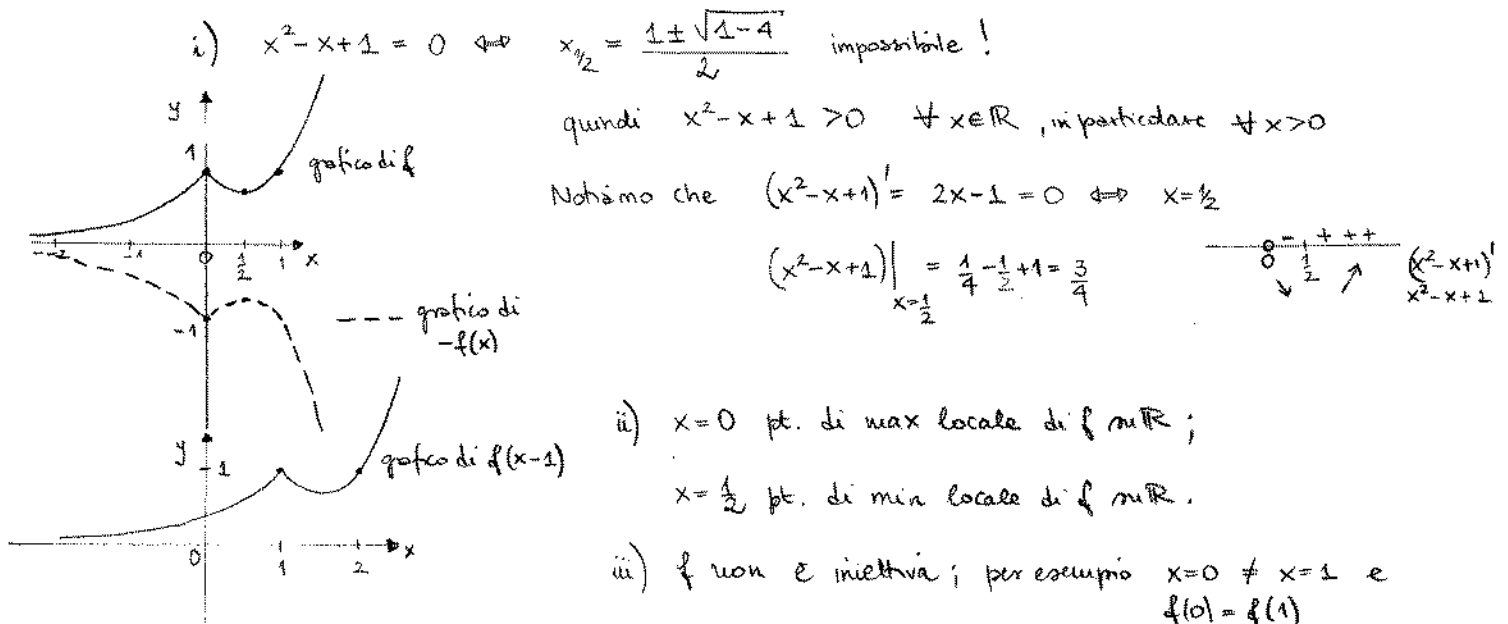 i) x²-x+1 = 0 ⇔ x₁/₂ = (1±√(1-4))/2 impossibile !
quindi x²-x+1 >0 ∀ x∈ℝ, in particolare ∀ x>0
Notiamo che (x²-x+1)' = 2x-1 = 0 ⇔ x=½
(x²-x+1)|ₓ₌½ = 1/4 - 1/2 + 1 = 3/4
- + + +
0 1/2 (x²-x+1)'
↘ ↗ x²-x+1
y
1
grafico di f
-2 -1 0 1/2 1 x
-1
--- grafico di
-f(x)
y
1
grafico di f(x-1)
0 1 2 x
ii) x=0 pt. di max locale di f su ℝ ;
x=½ pt. di min locale di f su ℝ.
iii) f non è iniettiva ; per esempio x=0 ≠ x=1 e
f(0) = f(1)